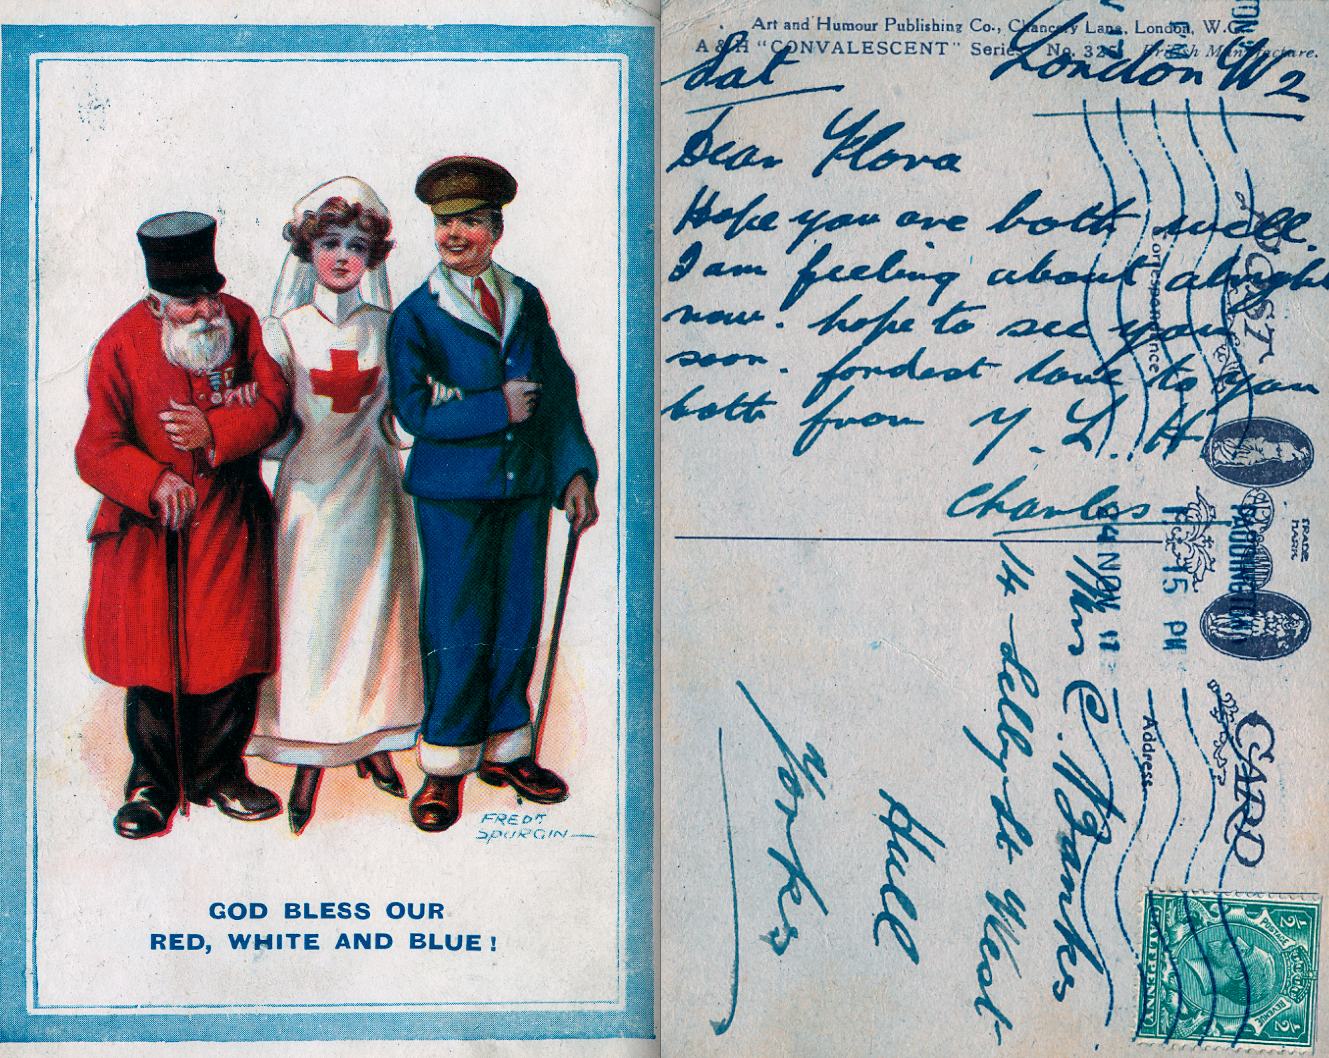 FREDK
SPURGIN
GOD BLESS OUR
RED, WHITE AND BLUE!
Art and Humour Publishing Co., Chancery Lane, London, W.C.
A & H "CONVALESCENT" Series No. 325 British Manufacture.
Sat London W2
Dear Flora
Hope you are both well.
I am feeling about alright
now. hope to see you
soon. fondest love to you
both from Y. L. H
Charles
POST CARD
Correspondence
Address
TRADE MARK
PADDINGTON
15 PM
24 NOV 17
Mrs C. Banks
14 Selby St West
Hull
Yorks
POSTAGE
REVENUE
HALFPENNY
1/2 1/2